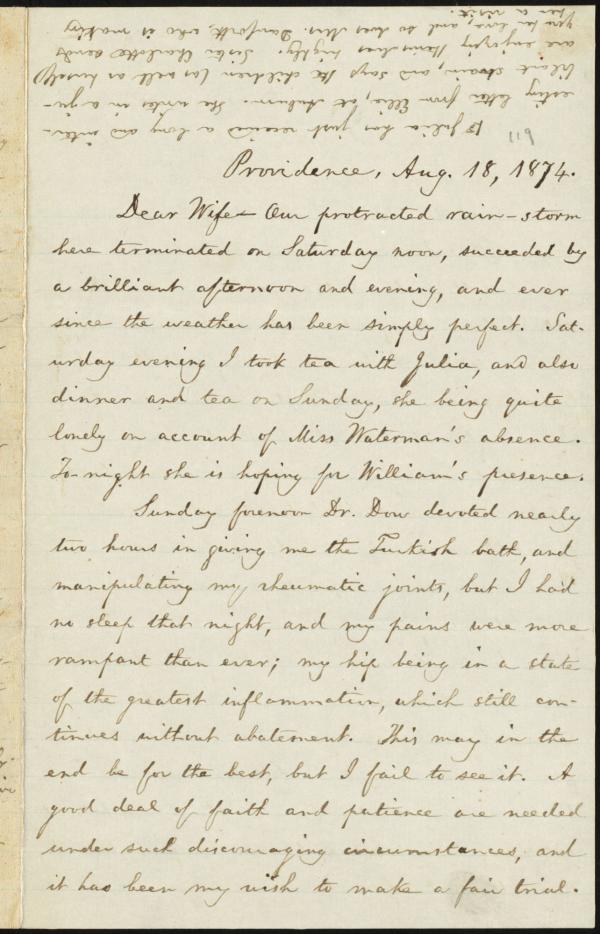 PS Julia has just received a long and inter-
esting letter from Ellie, at Auburn. She writes in a ju-
bilant strain, and says the children (as well as herself)
are enjoying themselves highly. Sister Charlotte sends
you her love, and so does Mrs. Danforth, who is making
her a visit.
119
Providence, Aug. 18, 1874.
Dear Wife— Our protracted rain-storm
here terminated on Saturday noon, succeeded by
a brilliant afternoon and evening, and ever
since the weather has been simply perfect. Sat-
urday evening I took tea with Julia, and also
dinner and tea on Sunday, she being quite
lonely on account of Miss Waterman's absence.
To-night she is hoping for William's presence.
Sunday forenoon Dr. Dow devoted nearly
two hours in giving me the Turkish bath, and
manipulating my rheumatic joints, but I had
no sleep that night, and my pains were more
rampant than ever; my hip being in a state
of the greatest inflammation, which still con-
tinues without abatement. This may in the
end be for the best, but I fail to see it. A
good deal of faith and patience are needed
under such discouraging circumstances, and
it has been my wish to make a fair trial.